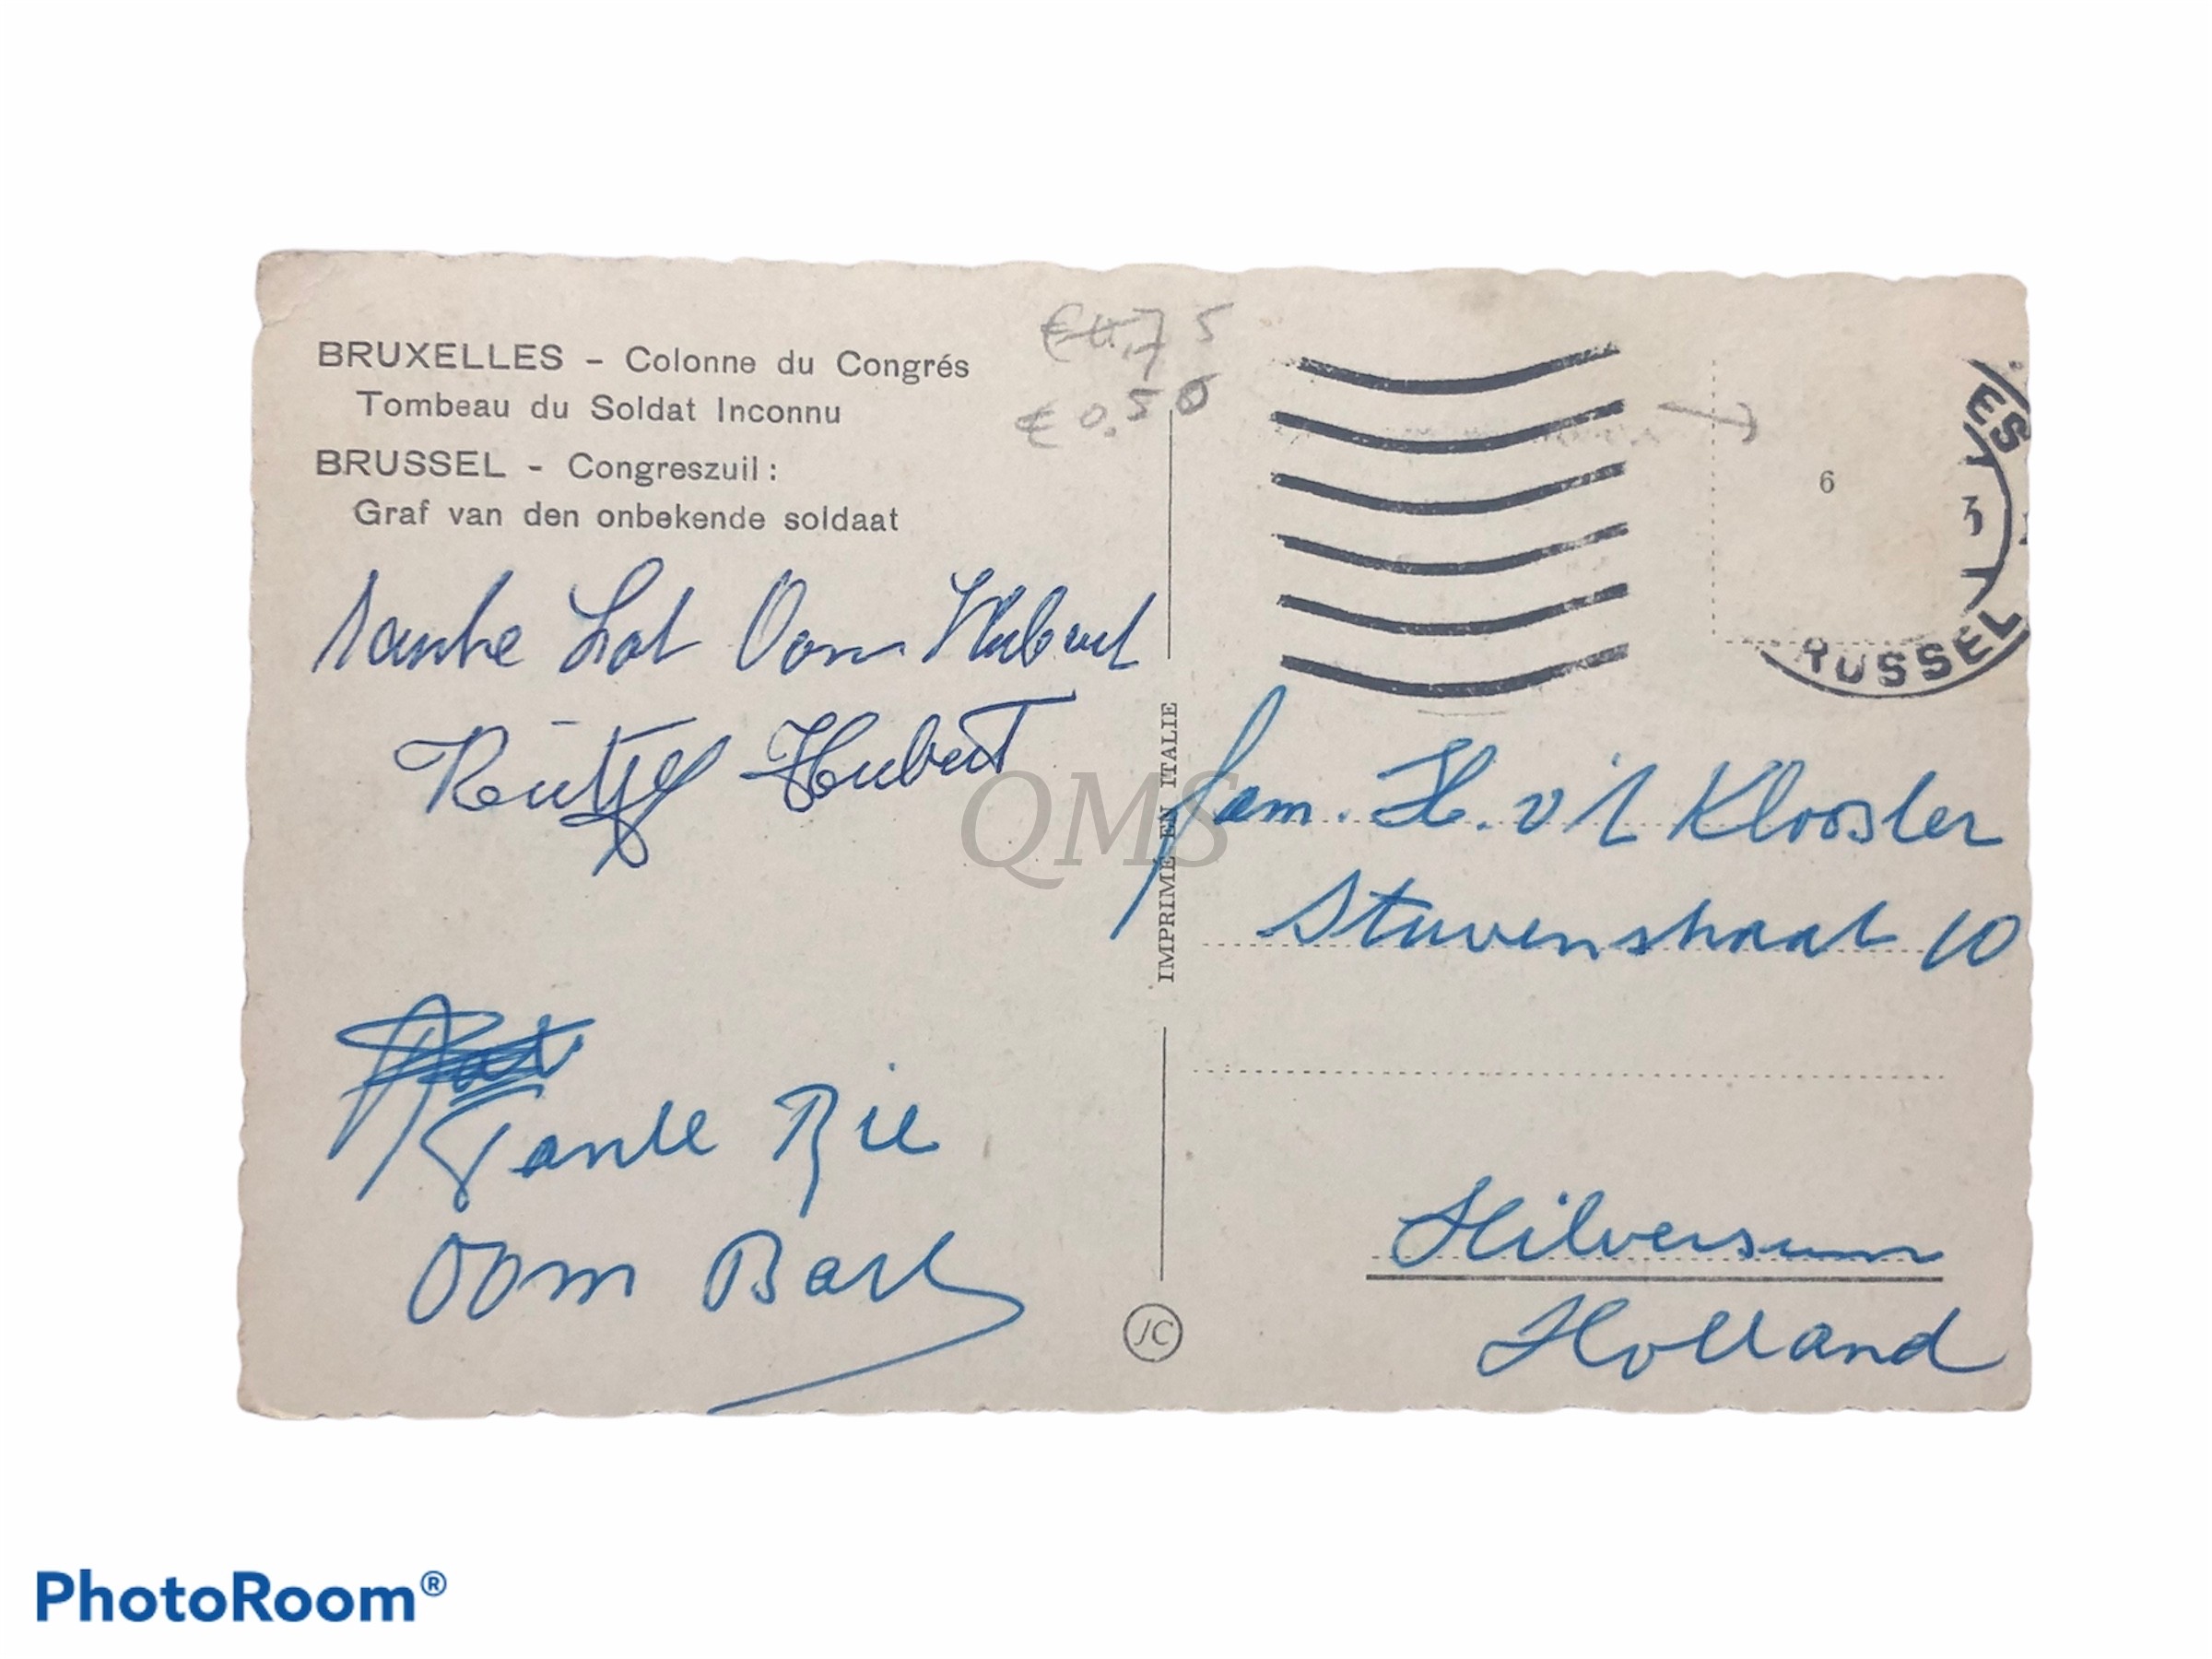 BRUXELLES - Colonne du Congrés
Tombeau du Soldat Inconnu
BRUSSEL - Congreszuil :
Graf van den onbekende soldaat
€ 0,75
€ 0,50
6
ES
3
RUSSEL
Tante Lot Oom Hubert
Hubert
Tante Rie
Oom Bart
IMPRIMÉ EN ITALIE
JC
QMS
Fam. H. v 't Klooster
Stuvenstraat 10
Hilversum
Holland
PhotoRoom®